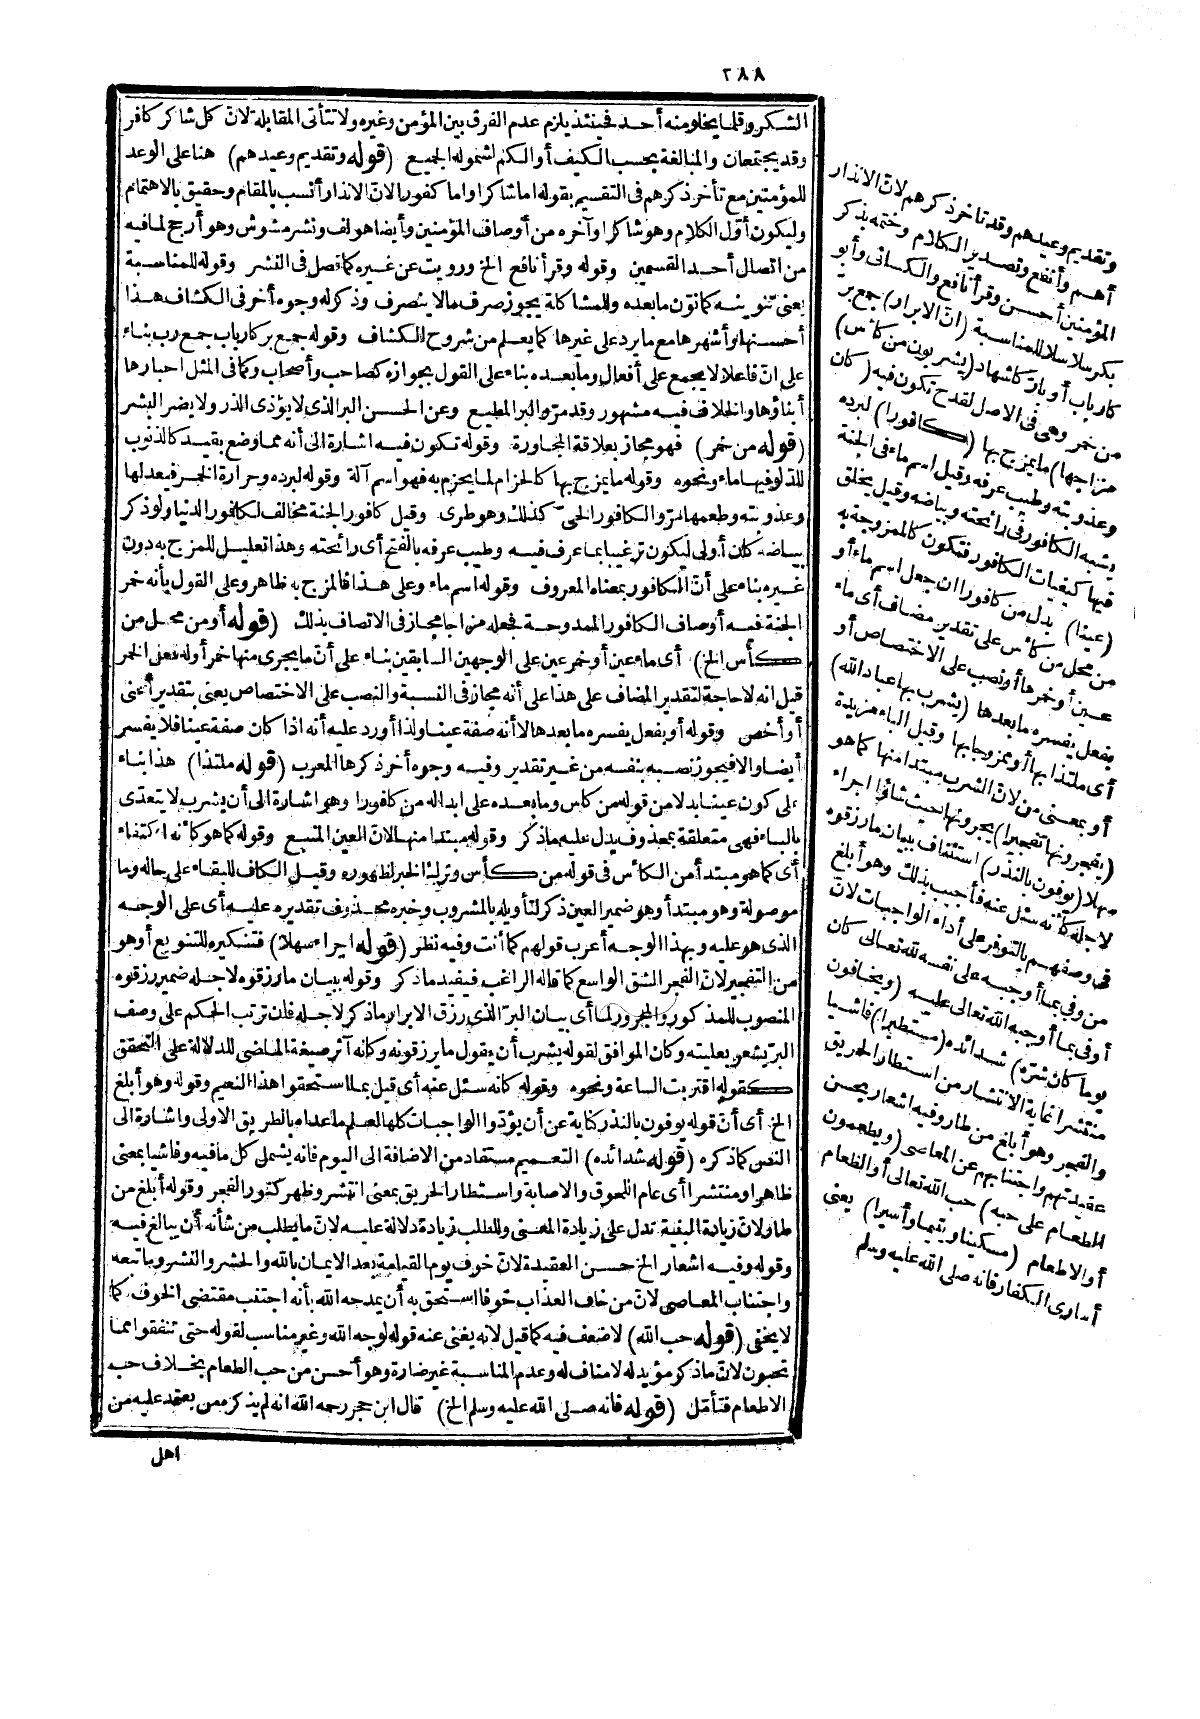 ٢٨٨
الشكر وقلما يخلو منه أحد فحينئذ يلزم عدم الفرق بين المؤمن وغيره ولا تتأتى المقابلة لان كل شاكر كافر
وقد يجتمعان والمبالغة بحسب الكيف أو الكم لشموله الجميع (قوله وتقديم وعيدهم) هنا على الوعد
للمؤمنين مع تأخر ذكرهم فى التقسيم بقوله اما شاكرا واما كفورا لان الانذار أنسب بالمقام وحقيق بالاهتمام
وليكون أول الكلام وهو شاكرا وآخره من أوصاف المؤمنين وأيضا هو لف ونشر مشوش وهو أرجح لما فيه
من اتصال أحد القسمين وقوله وقرأ نافع الخ ورويت عن غيره كما فصل فى النشر وقوله للمناسبة
يعنى تنوينه كما نوّن ما بعده وللمشاكلة يجوز صرف ما لا ينصرف وذكر له وجوه أخر فى الكشاف هذا
أحسنها وأشهرها مع ما يرد على غيرها كما يعلم من شروح الكشاف وقوله جمع بر كارباب جمع رب بناء
على انّ فاعلا لا يجمع على أفعال وما بعده بناء على القول بجوازه كصاحب وأصحاب وكما فى المثل اجبارها
أبناؤها والخلاف فيه مشهور وقد مرّ والبر المطيع وعن الحسن البر الذى لا يؤذى الذر ولا يضر البشر
(قوله من خمر) فهو مجاز بعلاقة المجاورة وقوله تكون فيه اشارة الى أنه مما وضع بقيد كالذنوب
للدلو فيها ماء ونحوه وقوله ما يمزج بها كالحزام لما يحزم به فهو اسم آلة وقوله لبرده وحرارة الخمر فيعدلها
وعذوبته وطعمها مرّ والكافور الحىّ كذلك وهو طرى وقيل كافور الجنة مخالف لكافور الدنيا ولو ذكر
بياضه كان أولى ليكون ترغيبا بما عرف فيه وطيب عرفه بالفتح أى رائحته وهذا تعليل للمزج به دون
غيره بناء على أنّ الكافور بمعناه المعروف وقوله اسم ماء وعلى هذا فالمزج به ظاهر وعلى القول بأنه خمر
الجنة فيه أوصاف الكافور الممدوحة فجعله مزاجا مجاز فى الاتصاف بذلك (قوله أو من محل من
كأس الخ) أى ماء عين أو خمر عين على الوجهين السابقين بناء على أنّ ما يجرى منها خمر أوله فعل الخمر
قيل انه لا حاجة لتقدير المضاف على هذا على أنه مجاز فى النسبة والنصب على الاختصاص يعنى بتقدير أعنى
أو أخص وقوله أو بفعل يفسره ما بعدها لا أنه صفة عينا ولذا أورد عليه أنه اذا كان صفة عينا فلا يفسر
أيضا والا فيجوز نصبه بنفسه من غير تقدير وفيه وجوه أخر ذكرها المعرب (قوله ملتذا) هذا بناء
على كون عينا بدلا من قوله من كأس وما بعده على ابداله من كافورا وهو اشارة الى أن يشرب لا يتعدى
بالباء فهى متعلقة بمحذوف يدل عليه ما ذكر وقوله مبتدا منها لان العين المنبع وقوله كما هو كأنه اكتفاء
أى كما هو مبتدأ من الكأس فى قوله من كأس وترك الخبر لظهوره وقيل الكاف للبقاء على حاله وما
موصولة وهو مبتدأ وهو ضمير العين ذكر لتأويله بالمشروب وخبره محذوف تقديره عليه أى على الوجه
الذى هو عليه وبهذا الوجه أعرب قولهم كما أنت وفيه نظر (قوله اجراء سهلا) فتنكيره للتنويع أو هو
من التفجير لان الفجر الشق الواسع كما قاله الراغب فيفيد ما ذكر وقوله بيان ما رزقوه لاجله ضمير رزقوه
المنصوب للمذكور والمجرور لما أى بيان البرّ الذى رزق الابرار ما ذكر لاجله فان ترتب الحكم على وصف
البرّ يشعر بعليته وكان الموافق لقوله يشرب أن يقول ما يرزقونه وكانه آثر صيغة الماضى للدلالة على التحقق
كقوله اقتربت الساعة ونحوه وقوله كانه سئل عنه أى قيل بما استحقوا هذا النعيم وقوله وهو أبلغ
الخ أى أنّ قوله يوفون بالنذر كناية عن أن يؤدّوا الواجبات كلها لعلم ما عداه بالطريق الاولى واشارة الى
النص كما ذكره (قوله شدائده) التعميم مستفاد من الاضافة الى اليوم فانه يشمل كل ما فيه وفاشيا بمعنى
ظاهرا ومنتشرا أى عام اللحوق والاصابة واستطار الحريق بمعنى انتشر وظهر كنور الفجر وقوله أبلغ من
طار لان زيادة البنية تدل على زيادة المعنى وللطلب زيادة دلالة عليه لان ما يطلب من شأنه أن يبالغ فيه
وقوله وفيه اشعار الخ حسن العقيدة لان خوف يوم القيامة بعد الايمان بالله والحشر والنشر وما تبعه
واجتناب المعاصى لان من خاف العذاب خوفا استحق به أن يمدحه الله بأنه اجتنب مقتضى الخوف كما
لا يخفى (قوله حب الله) لا ضعف فيه كما قيل لانه يغنى عنه قوله لوجه الله وغير مناسب لقوله حتى تنفقوا مما
تحبون لانّ ما ذكر مؤيد له لا مناف له وعدم المناسبة غير ضارة وهو أحسن من حب الطعام بخلاف حب
الاطعام فتأمّل (قوله فانه صلى الله عليه وسلم الخ) قال ابن حجر رحمه الله انه لم يذكر من يعتمد عليه من
اهل
وتقديم وعيدهم وقد تأخر ذكرهم لان الانذار
أهم وأنفع وتصدير الكلام وختمه بذكر
المؤمنين أحسن وقرأ نافع والكسائى وأبو
بكر سلاسلا للمناسبة (انّ الابرار) جمع بر
كارباب أو بار كاشهاد (يشربون من كأس)
من خمر وهى فى الاصل لقدح تكون فيه (كان
مزاجها) ما يمزج بها (كافورا) لبرده
وعذوبته وطيب عرفه وقيل اسم ماء فى الجنة
يشبه الكافور فى رائحته وبياضه وقيل يخلق
فيها كيفيات الكافور فتكون كالممزوجة به
(عينا) بدل من كافورا ان جعل اسم ماء أو
من محل من كأس على تقدير مضاف أى ماء
عين أو خمرها أو نصب على الاختصاص أو
بفعل يفسره ما بعدها (يشرب بها عباد الله)
أى ملتذا بها أو ممزوجا بها وقيل الباء مزيدة
أو بمعنى من لانّ الشرب مبتدا منها كما هو
(يفجرونها تفجيرا) يجرونها حيث شاؤا اجراء
سهلا (يوفون بالنذر) استئناف ببيان ما رزقوه
لاجله كأنه سئل عنه فأجيب بذلك وهو أبلغ
فى وصفهم بالتوفر على أداء الواجبات لانّ
من وفى بما أوجبه على نفسه لله تعالى كان
أوفى بما أوجبه الله تعالى عليه (ويخافون
يوما كان شرّه) شدائده (مستطيرا) فاشيا
منتشرا غاية الانتشار من استطار الحريق
والفجر وهو أبلغ من طار وفيه اشعار بحسن
عقيدتهم واجتنابهم عن المعاصى (ويطعمون
الطعام على حبه) حب الله تعالى أو الطعام
أو الاطعام (مسكينا ويتيما وأسيرا) يعنى
أسارى الكفار فانه صلى الله عليه وسلم